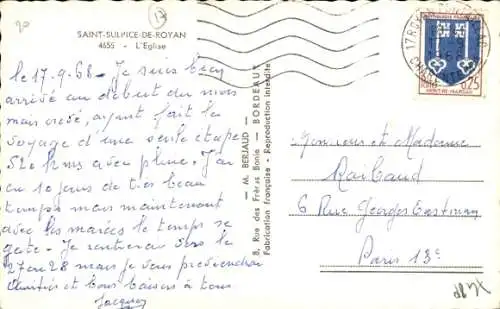 SAINT-SULPICE-DE-ROYAN
4655 - L'Eglise
le 17-9-68 - Je suis bien
arrivé au début du mois
mais crevé, ayant fait le
voyage d'une seule étape
520 kms avec pluie. J'ai
eu 10 jours de très beau
temps mais maintenant
avec les marées le temps se
gate - Je rentrerai vers le
27 ou 28 mais je vous préviendrai
Amitiés et bons baisers à tous
Jacques
— M. BERJAUD —
8, Rue des Frères Bonie — BORDEAUX
Fabrication française - Reproduction interdite
0,25
MONT-DE-MARSAN
Monsieur et Madame
Raibaud
6 Rue Georges Eastman
Paris 13e